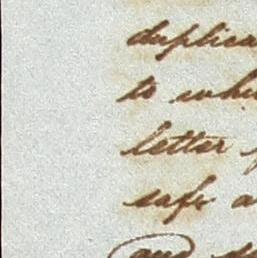 duplica
to whi
letter
safe a
and